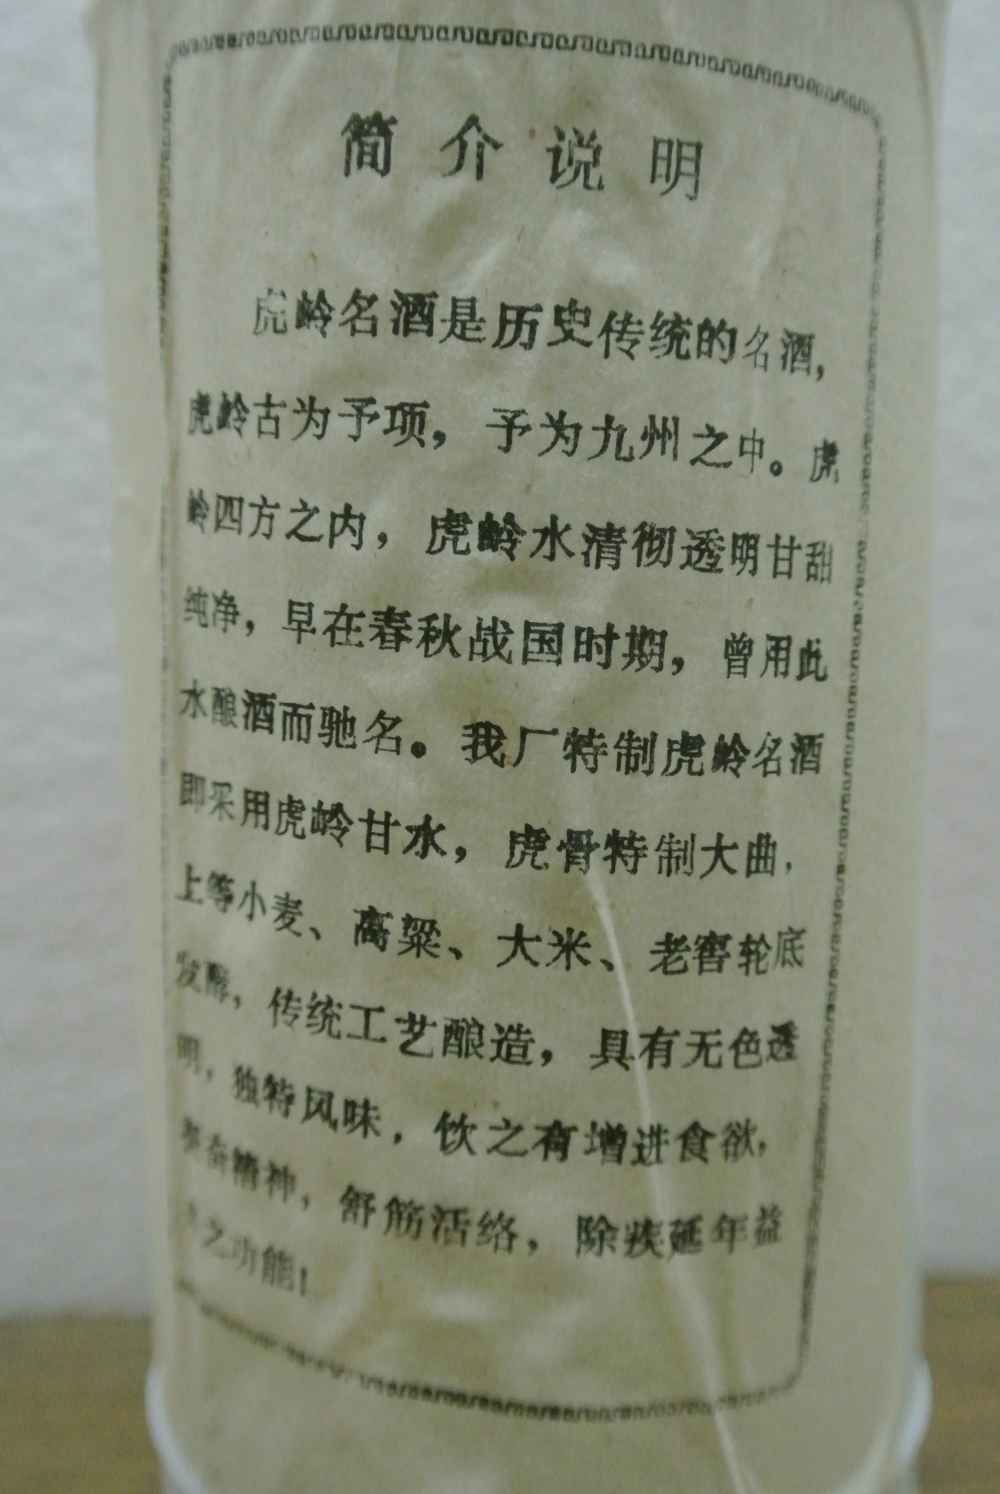 简介说明
虎岭名酒是历史传统的名酒，
虎岭古为予项，予为九州之中。虎
岭四方之内，虎岭水清彻透明甘甜
纯净，早在春秋战国时期，曾用此
水酿酒而驰名。我厂特制虎岭名酒
即采用虎岭甘水，虎骨特制大曲，
上等小麦、高粱、大米、老窖轮底
发酵，传统工艺酿造，具有无色透
明，独特风味，饮之有增进食欲，
振奋精神，舒筋活络，除疾延年益
之功能！